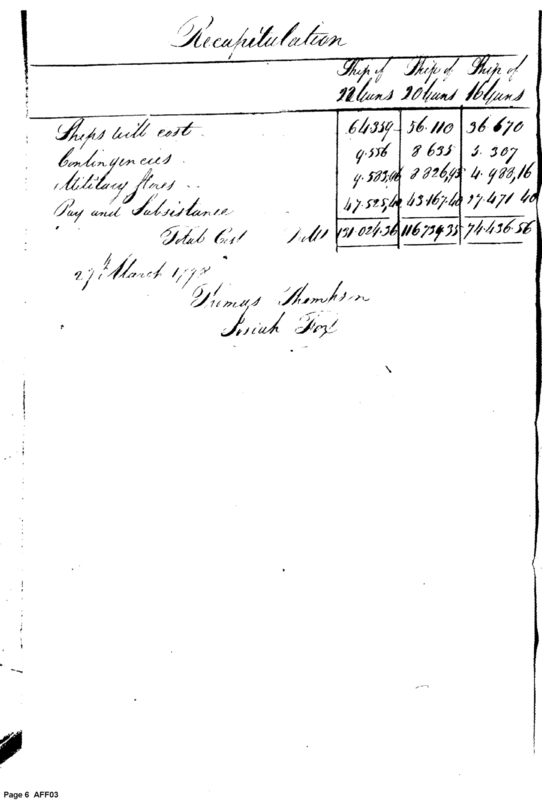 Recapitulation
Ship of Ship of Ship of
22 Guns 20 Guns 16 Guns
Ships will cost 64359 56.110 36 670
Contingencies 9.556 8 635 5.307
Military stores 9.583,96 8 826,95 4.988,16
Pay and Subsistance 47.525,40 43.167.40 27.471 40
Total Cost Dolls 131.024.36 116739.35 74.436.56
27th March 1798
Thomas Thompson
Josiah Fox
Page 6 AFF03